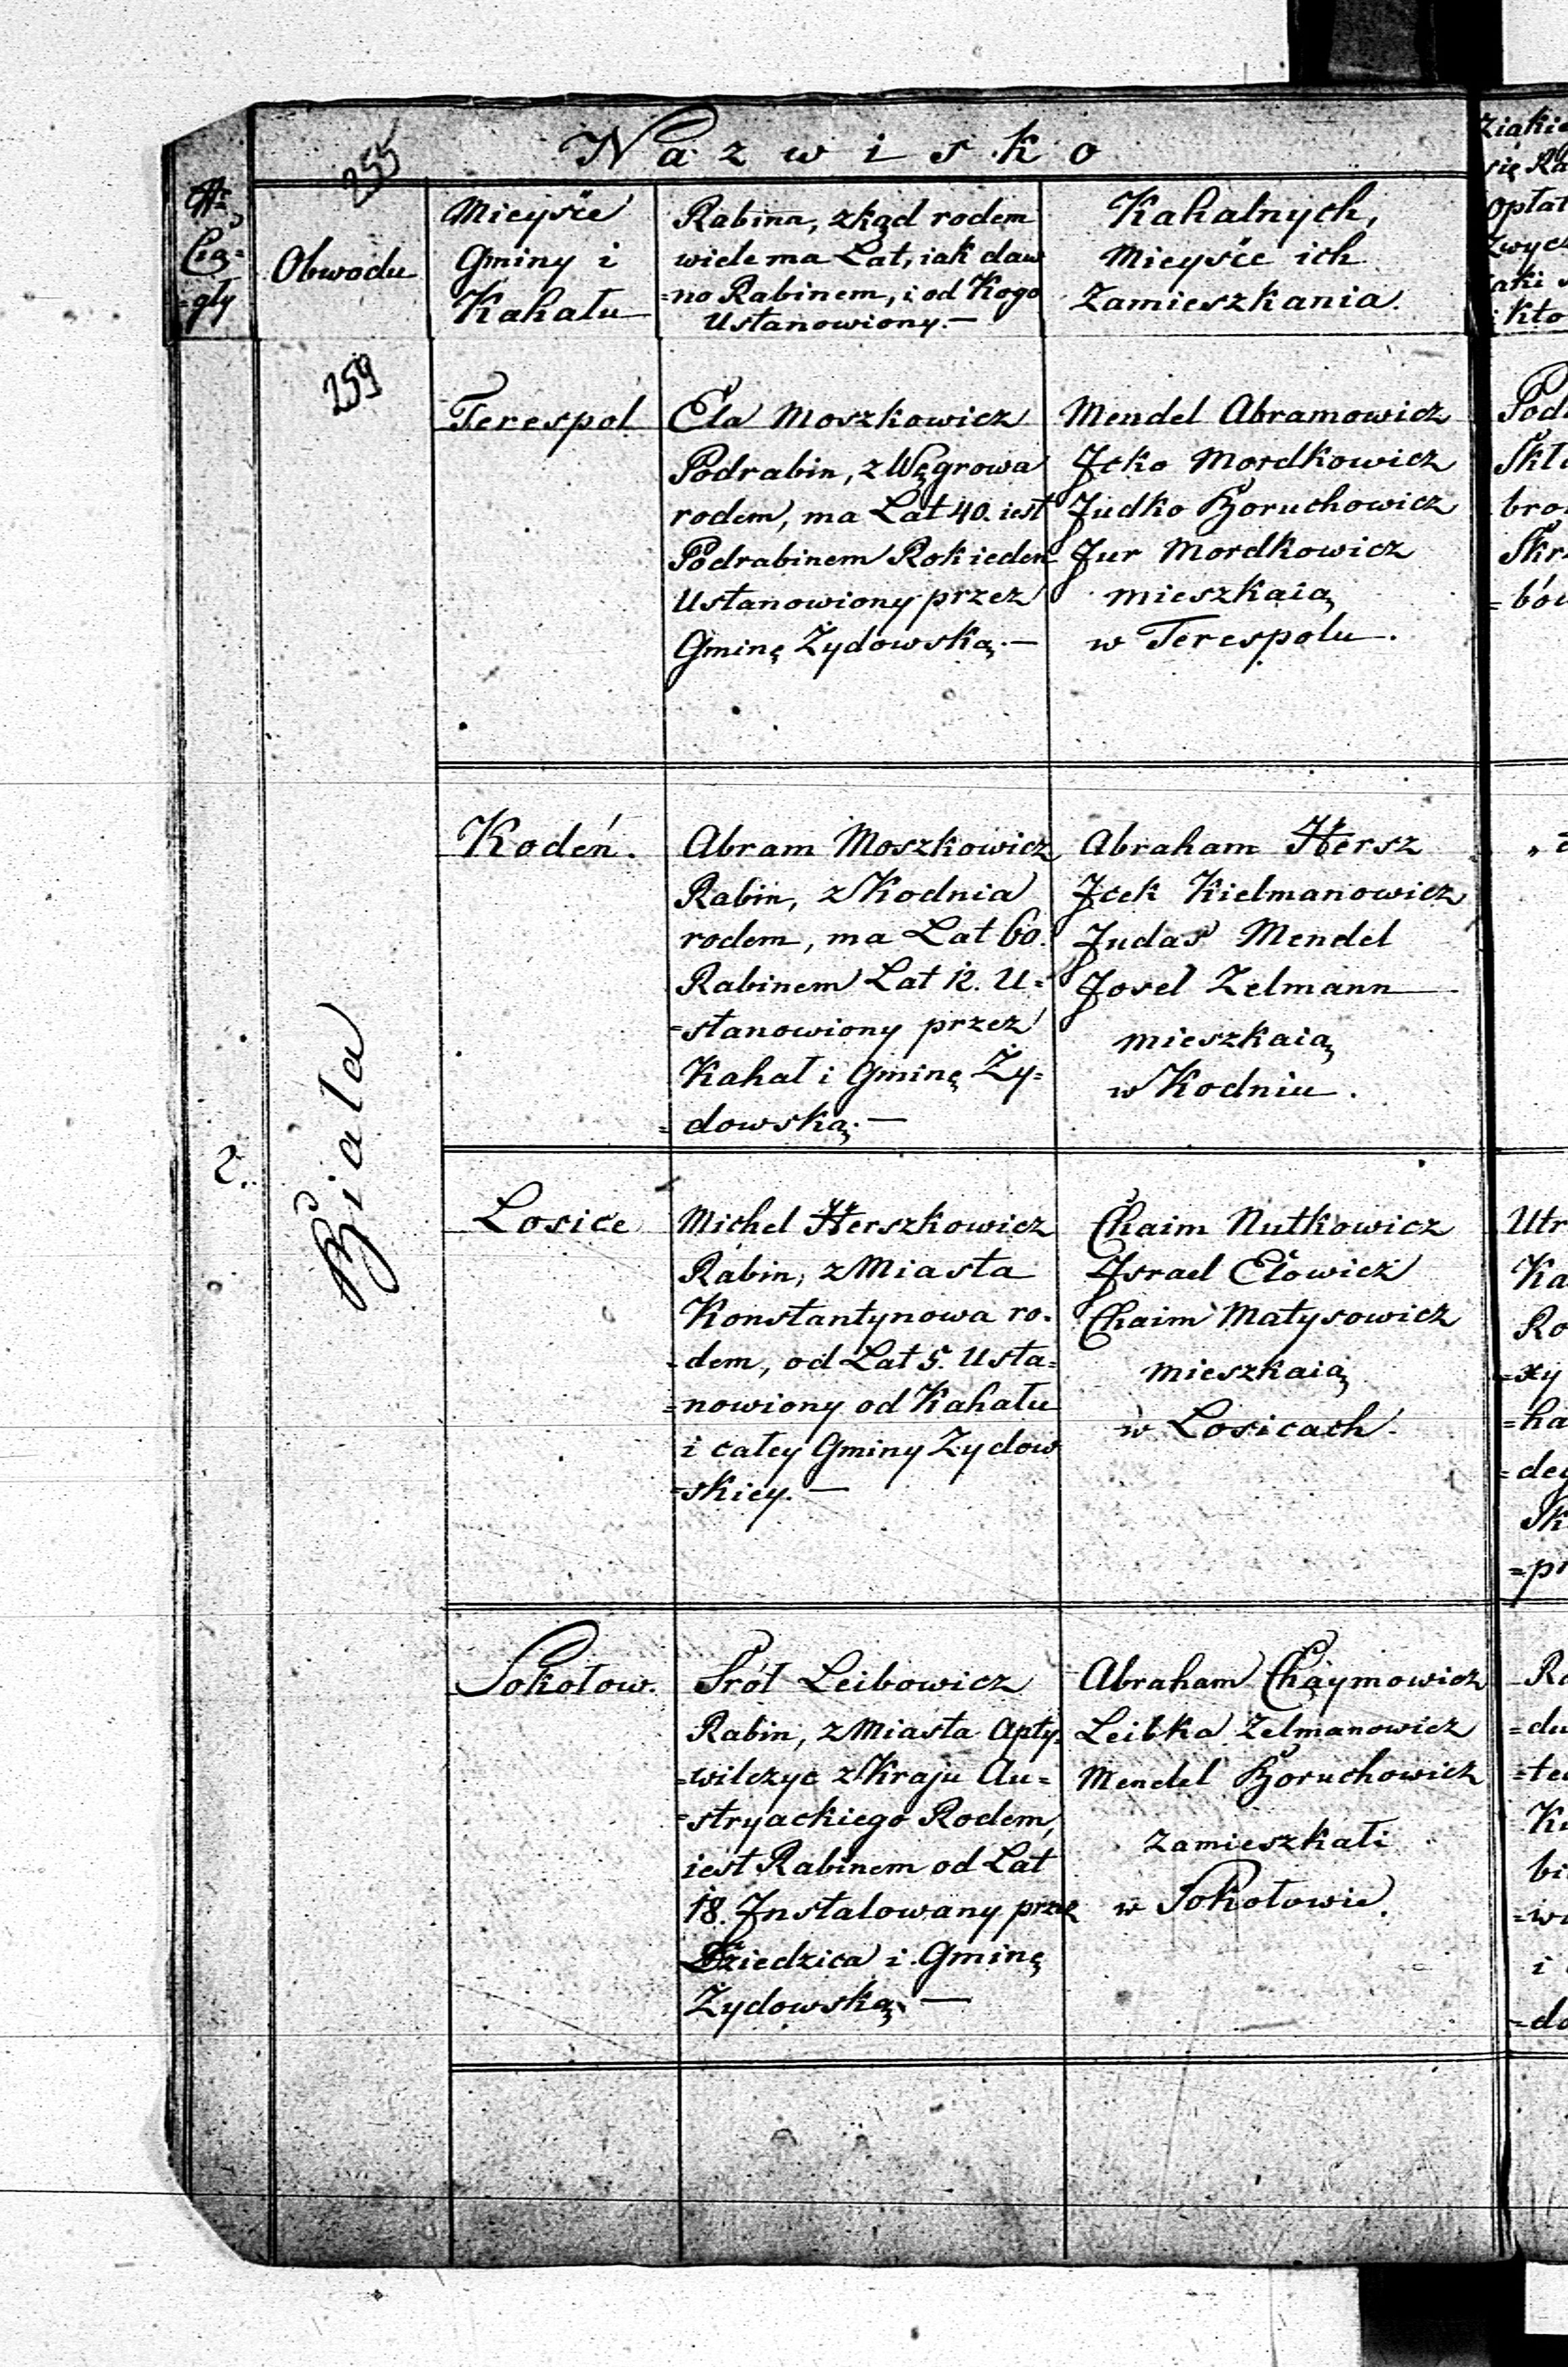 Nazwisko
255
N=
Cią=
=gły
Obwodu
Mieysce
Gminy i
Kahału
Rabina, zkąd rodem
wiele ma Lat, iak daw
=no Rabinem, i od Kogo
Ustanowiony.—
Kahalnych,
Mieysce ich
Zamieszkania.
259
2.
Biala
Terespol
Ela Moszkowicz
Podrabin, z Węgrowa
rodem, ma Lat 40. iest
Podrabinem Rok ieden
Ustanowiony przez
Gminę Żydowską.—
Mendel Abramowicz
Jcko Mordkowicz
Judko Boruchowicz
Jur Mordkowicz
mieszkaią
w Terespolu.
Kodeń.
Abram Moszkowicz
Rabin, z Kodnia
rodem, ma Lat 60.
Rabinem Lat 12. U=
=stanowiony przez
Kahał i Gminę Ży=
=dowską.—
Abraham Hersz
Jcek Kielmanowicz
Judas Mendel
Josel Zelmann
mieszkaią
w Kodniu.
Losice
Michel Herszkowicz
Rabin, z Miasta
Konstantynowa ro.
dem, od Lat 5. Usta=
=nowiony od Kahału
i całey Gminy Zydow
=skiey.—
Chaim Nutkowicz
Jsrael Elowicz
Chaim Matysowicz
mieszkaią
w Losicach.
Sokołow.
Srół Leibowicz
Rabin, z Miasta Apty.
=wilczyc z Kraju Au=
=stryackiego Rodem,
iest Rabinem od Lat
18. Jnstalowany przez
Dziedzica i Gminę
Żydowską.—
Abraham Chaymowicz
Leibka Zelmanowicz
Mendel Boruchowicz
zamieszkali
w Sokołowie.